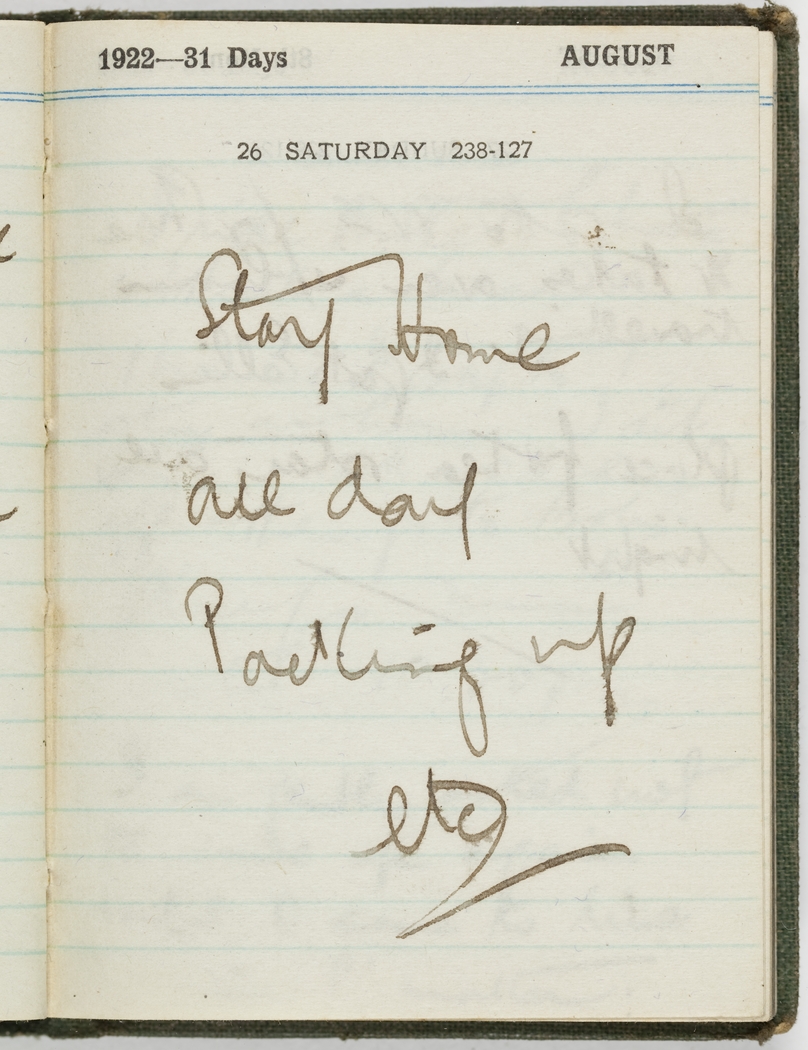 1922—31 Days AUGUST
26 SATURDAY 238-127
Stay Home
all day
Packing up
etc